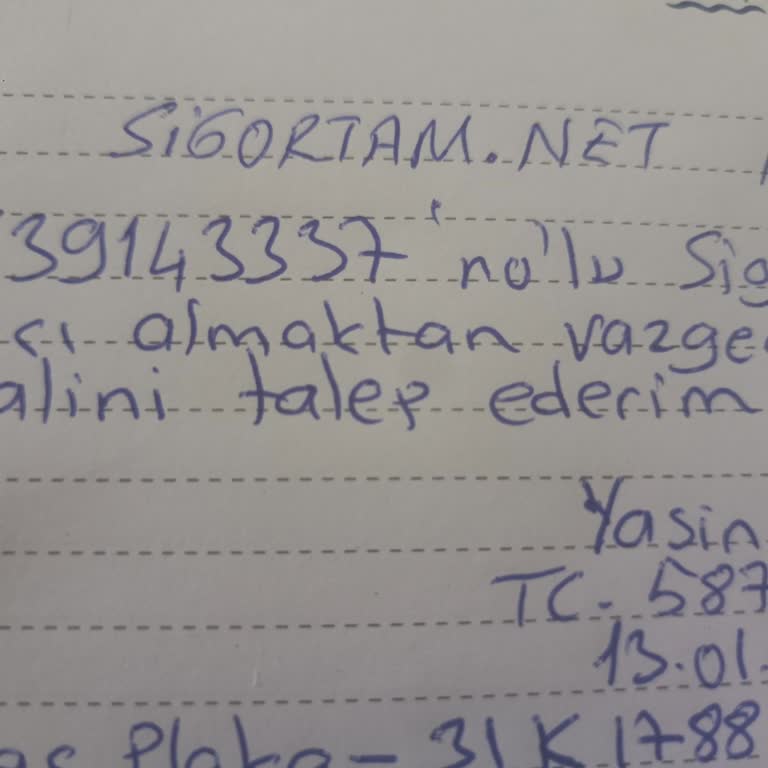 SİGORTAM.NET
39143337 no'lu Sig
çı almaktan vazge
alini talep ederim
Yasin
TC. 587
13.01.
aç Plaka - 31 K 1788